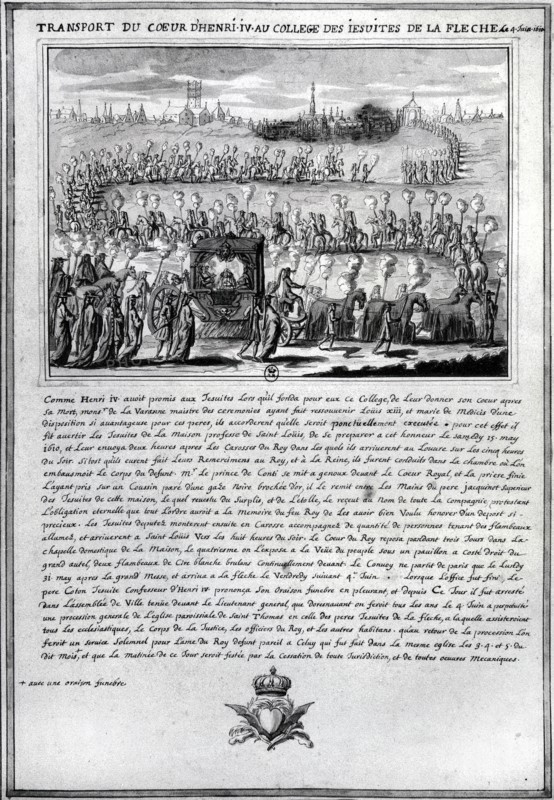 TRANSPORT DU COEUR D'HENRI·IV·AU COLLEGE DES IESUITES DE LA FLECHE Le 4 Juin 1610
Comme Henri iv avoit promis aux Iesuites Lors qu'il fonda pour eux ce College, de Leur donner son Coeur apres
Sa Mort, mons.r de La Varanne maistre des ceremonies ayant fait ressouvenir Loüis xiii, et marie de Médicis d'une
disposition si avantageuse pour ces peres, ils accorderent qu'elle seroit ponctuellement executée · pour cet effet il
fit avertir Les Iesuites de La Maison professe de Saint Loüis, de Se preparer a cet honneur Le Samedy 15 may
1610, et Leur envoya deux heures apres Les Carosses du Roy dans Lesquels ils arriverent au Louvre sur Les cinq heures
du Soir. Sitost qu'ils eurent fait Leurs Remercimens au Roy, et à La Reine, ils furent conduits dans La chambre où L'on
embaumoit Le Corps du defunt. M.r Le prince de Conti Se mit a genoux devant Le Coeur Royal, et La priere finie
L'ayant pris sur un Coussin paré d'une gaze Noire brochée d'or, il Le remit entre Les Mains du pere jacquinot Superieur
des Iesuites de cette maison, Le quel revestu du Surplis, et de L'étolle, Le reçeut au Nom de toute La Compagnie, protestant
L'obligation eternelle que tout L'ordre auroit a La Memoire du feu Roy de Les avoir bien Voulu honorer d'un depost si
precieux. Les Iesuites deputez monterent ensuite en Carosse accompagnez de quantité de personnes tenant des flambeaux
allumez, et arriverent a Saint Loüis Vers Les huit heures du Soir. Le Coeur du Roy reposa pandant trois Iours dans La
chapelle domestique de La Maison, Le quatriesme on L'exposa a La Veüe du peuple sous un pavillon a Costé droit du
grand autel, deux flambeaux de Cire blanche brulans Continuellement devant. Le Convoy ne partit de paris que Le Lundy
31 may apres La grand Messe, et arriva a La fleche Le Vendredy Suivant 4.e Juin · Lorsque L'office fut fini, Le
pere Coton Iesuite Confesseur d'Henri iv prononça Son Oraison funebre en pleurant, et depuis Ce Iour il fut arresté
dans L'assemblée de Ville tenüe devant Le Lieutenant general, que dorenavant on feroit tous Les ans Le 4 Juin a perpetuité
une procession generale de L'eglise paroissiale de Saint Thomas en celle des peres Iesuites de La fleche, a laquelle assisteroient
tous Les ecclesiastiques, Le Corps de La Iustice, Les officiers du Roy, et Les autres habitans. qu'au retour de La procession L'on
feroit un Service Solemnel pour L'ame du Roy defunt pareil a Celuy qui fut fait dans La mesme eglise Les 3. 4. et 5. du
dit Mois, et que La matinée de ce Iour seroit festée par La Cessation de toute Iurisdiction, et de toutes oeuvres Mecaniques.
+ avec une oraison funebre